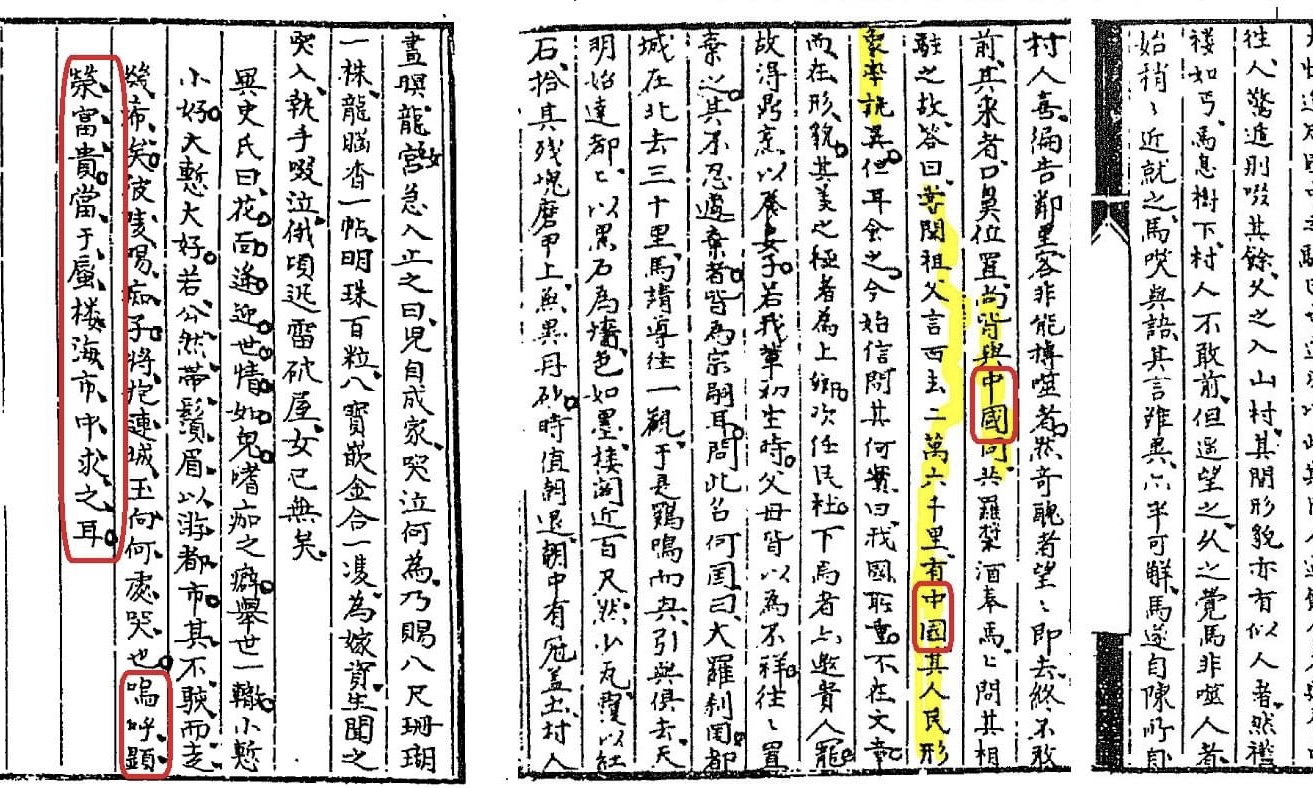 往人驚逃則啜其餘久之入山村其間形貌亦有似人者然襤
褸如丐馬息樹下村人不敢前但遥望之久之覺馬非噬人者
始稍〻近就之馬笑與語其言雖異亦半可解馬遂自陳所自
村人喜徧告鄰里客非能搏噬者然奇醜者望〻即去終不敢
前其来者口鼻位置尚皆與中國同共羅漿酒奉馬〻問其相
駭之故答曰嘗聞祖父言西去二萬六千里有中國其人民形
象率詭異但耳食之今始信問其何貧曰我國所重不在文章
而在形貌其美之極者為上卿次任民社下焉者亦邀貴人寵
故得鼎烹以養妻子若我軰初生時父母皆以為不祥往〻置
棄之其不忍遽棄者皆為宗嗣耳問此名何国曰大羅刹國都
城在北去三十里馬請導往一觀于是鷄鳴而興引與俱去天
明始達都〻以黑石為墻色如墨樓閣近百尺然少瓦覆以紅
石拾其殘塊磨甲上無異丹砂時值朝退朝中有冠盖出村人
晝暝龍宫女急入止之曰兒自成家哭泣何為乃賜八尺珊瑚
一株龍腦香一帖明珠百粒八寶嵌金合一雙為嫁資生聞之
突入執手啜泣俄頃迅雷破屋女已無矣
異史氏曰花面逢迎世情如鬼嗜痂之癖舉世一轍小慙
小好大慙大好若公然帶鬚眉以游都市其不駭而走
幾希矣彼陵陽痴子將抱連城玉向何處哭也嗚呼顯
榮富貴當于蜃樓海市中求之耳